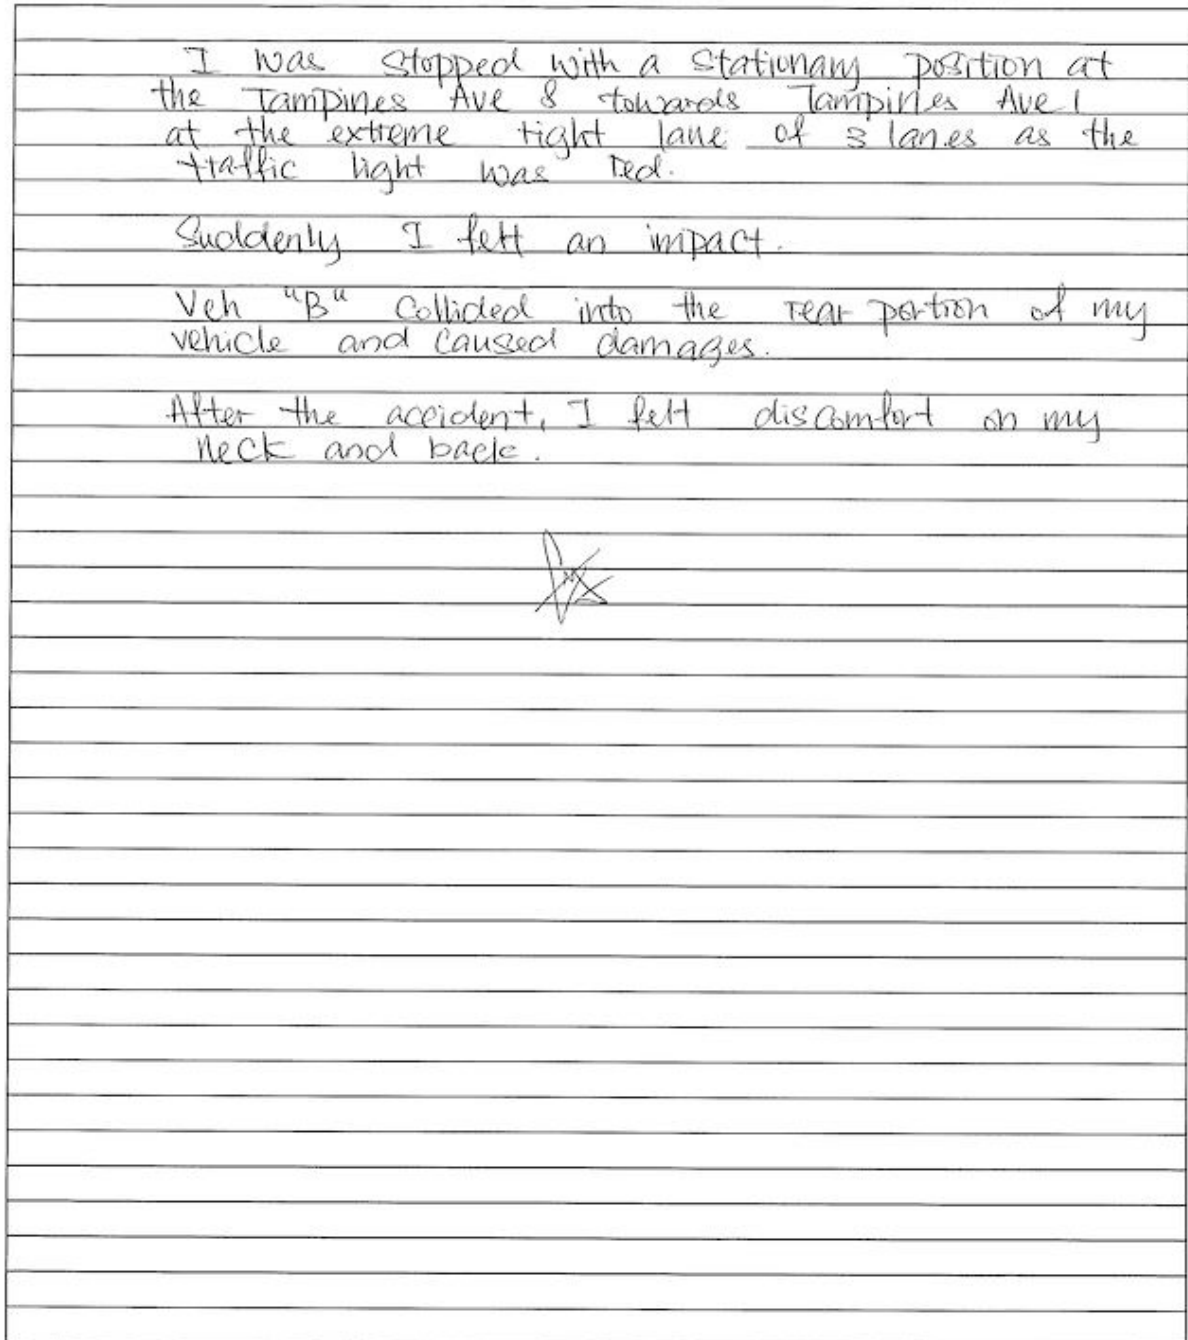 I was stopped with a stationary position at
the Tampines Ave 8 towards Tampines Ave 1
at the extreme right lane of 3 lanes as the
traffic light was red.
Suddenly I felt an impact.
Veh "B" collided into the rear portion of my
vehicle and caused damages.
After the accident, I felt discomfort on my
neck and back.